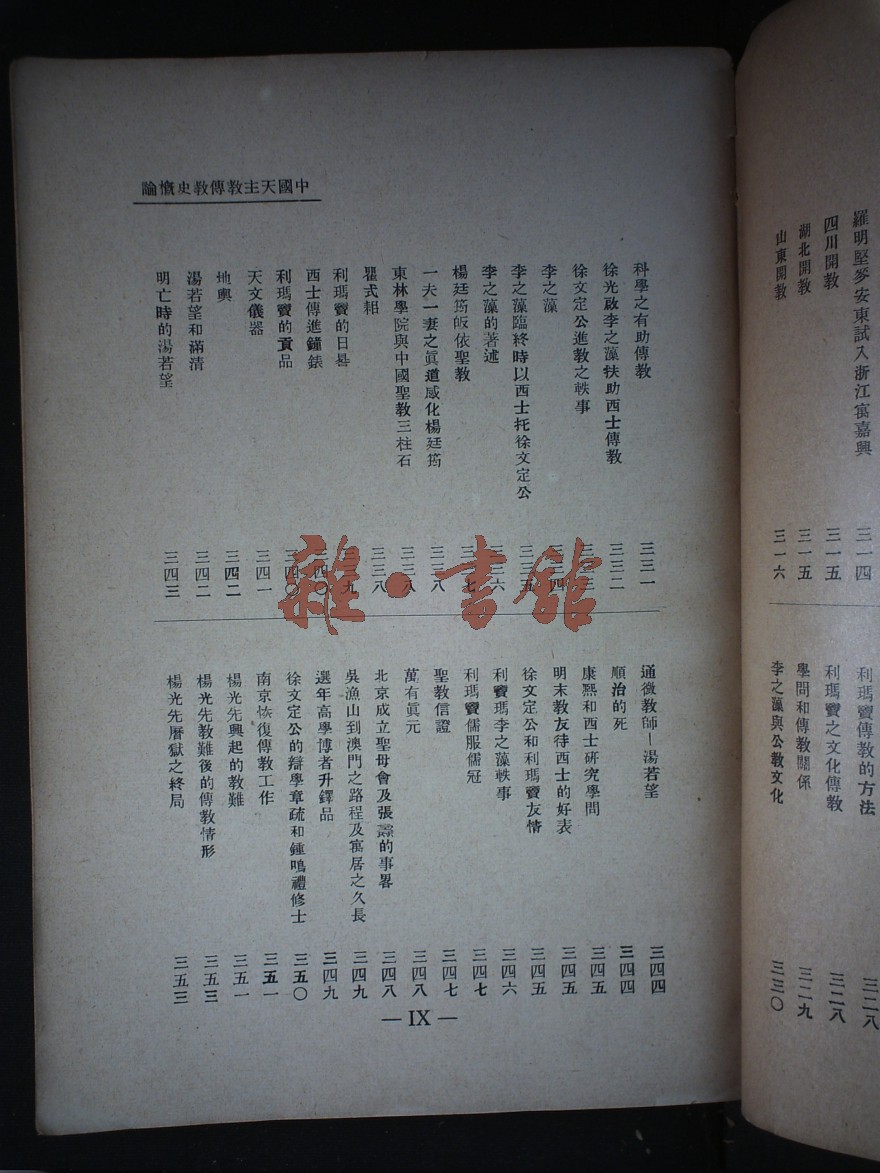 羅明堅麥安東試入浙江寓嘉興 三一四
四川開教 三一五
湖北開教 三一五
山東開教 三一六
利瑪竇傳教的方法 三二八
利瑪竇之文化傳教 三二八
學問和傳教關係 三二九
李之藻與公教文化 三三〇
中國天主教傳教史概論
科學之有助傳教 三三一
徐光啟李之藻扶助西士傳教 三三二
徐文定公進教之軼事 三三三
李之藻 三三四
李之藻臨終時以西士托徐文定公 三三五
李之藻的著述 三三六
楊廷筠皈依聖教 三三七
一夫一妻之眞道感化楊廷筠 三三八
東林學院與中國聖教三柱石 三三八
瞿式耜 三三八
利瑪竇的日晷 三三九
西士傳進鐘錶 三四〇
利瑪竇的貢品 三四〇
天文儀器 三四一
地輿 三四二
湯若望和滿清 三四二
明亡時的湯若望 三四三
通微教師—湯若望 三四四
順治的死 三四四
康熙和西士研究學問 三四五
明末教友待西士的好表 三四五
徐文定公和利瑪竇友情 三四五
利竇瑪李之藻軼事 三四六
利瑪竇儒服儒冠 三四七
聖教信證 三四七
萬有眞元 三四八
北京成立聖母會及張燾的事畧 三四八
吳漁山到澳門之路程及寓居之久長 三四九
選年高學博者升鐸品 三四九
徐文定公的辯學章疏和鍾鳴禮修士 三五〇
南京恢復傳教工作 三五一
楊光先興起的教難 三五一
楊光先教難後的傳教情形 三五三
楊光先曆獄之終局 三五三
— IX —
雜·書館